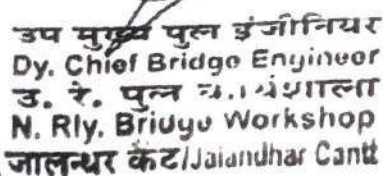 उप मुख्य पुल इंजीनियर
Dy. Chief Bridge Engineer
उ. रे. पुल
N. Rly. Bridge Workshop
जालन्धर कैंट/Jalandhar Cantt